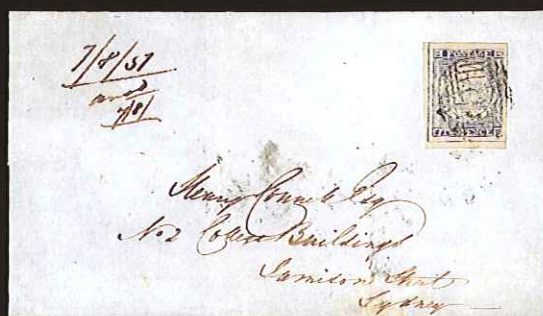 7/8/57
7/8/
POSTAGE
Henry Connell Esq
No 2 College Buildings
Jamison Street
Sydney